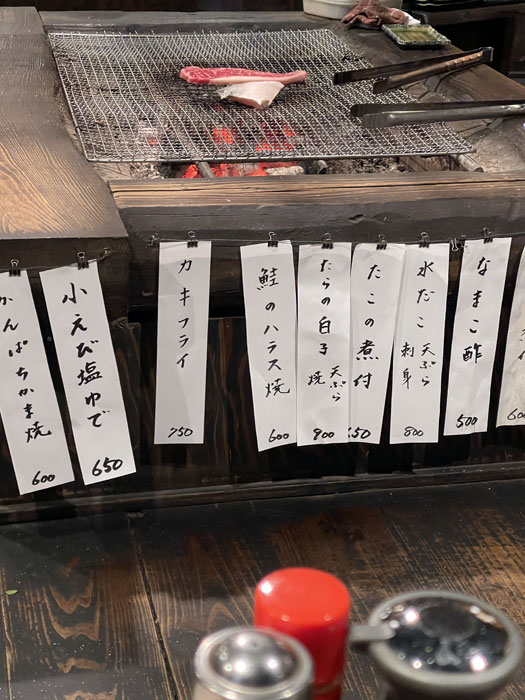 かんぱちかま焼
600
小えび塩ゆで
650
カキフライ
750
鮭のハラス焼
600
たらの白子 天ぷら
焼
900
たこの煮付
650
水だこ 天ぷら
刺身
800
なまこ酢
500
60